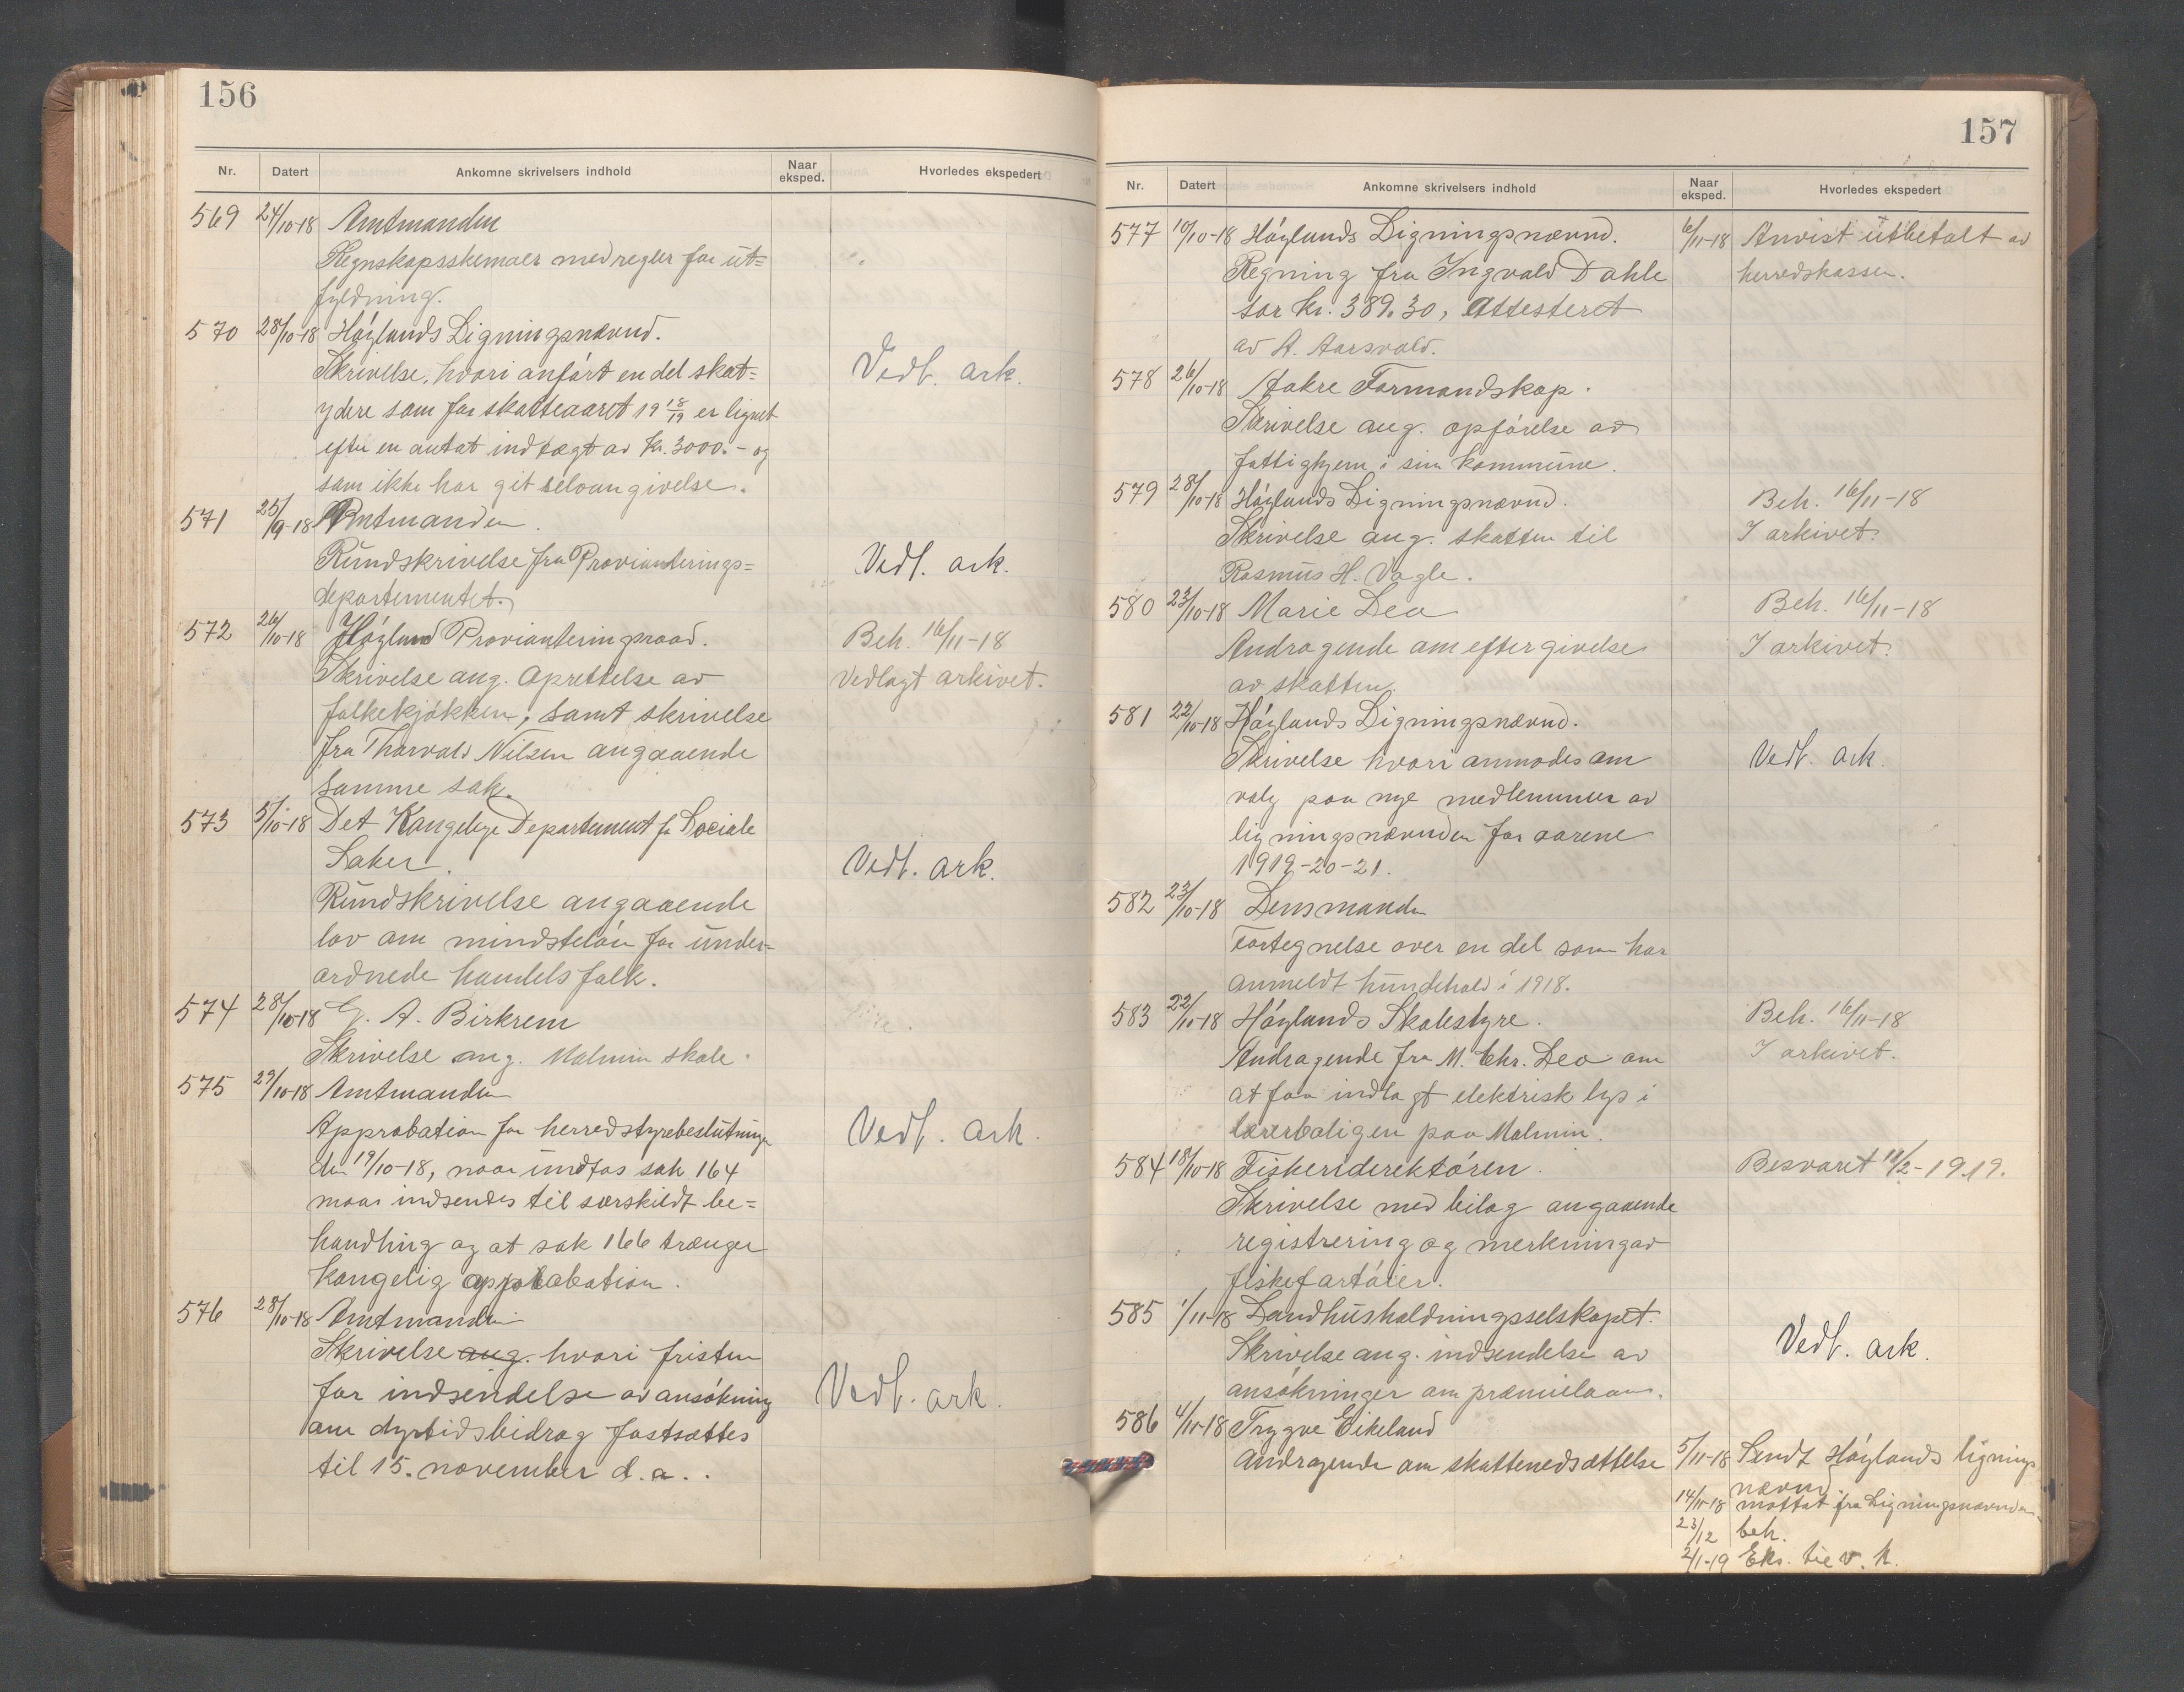 156
Nr. Datert Ankomne skrivelsers indhold Naar eksped. Hvorledes ekspedert
569 24/10-18 Amtmanden
Regnskapsskemaer med regler for ut=
fyldning.
570 28/10-18 Høylands Ligningsnævnd.
Skrivelse, hvori anført en del skat= Vedl. ark.
ydere som for skatteaaret 19 18/19 er lignet
efter en antat indtægt av kr. 3000.- og
som ikke har git selvangivelse.
571 25/9-18 Amtmanden.
Rundskrivelse fra Provianterings= Vedl. ark.
departementet.
572 26/10-18 Høyland Provianteringsraad. Beh. 16/11-18
Skrivelse ang. oprettelse av Vedlagt arkivet.
folkekjøkken, samt skrivelse
fra Thorvald Nilsen angaaende
samme sak.
573 5/10-18 Det Kongelige Departement for Sociale
Saker. Vedl. ark.
Rundskrivelse angaaende
lov om mindsteløn for under-
ordnede handelsfolk.
574 28/10-18 G. A. Birkrem
Skrivelse ang. Malmin skole.
575 29/10-18 Amtmanden
Approbation for herredstyrebeslutninger Vedl. ark.
den 19/10-18, naar undtas sak 164
maa indsendes til særskildt be=
handling og at sak 166 trænger
kongelig approbation.
576 28/10-18 Amtmanden
Skrivelse ang. hvori fristen
for indsendelse av ansøkning Vedl. ark.
om dyrtidsbidrag fastsættes
til 15. november d.a..
157
Nr. Datert Ankomne skrivelsers indhold Naar eksped. Hvorledes ekspedert
577 10/10-18 Høylands Ligningsnævnd. 6/11-18 Anvist utbetalt av
Regning fra Ingvald Dahle herredskassen.
for kr. 389.30, attesteret
av A. Aarsvold.
578 26/10-18 Aakre Formandskap.
Skrivelse ang. opførelse av
fattighjem i sin kommune.
579 28/10-18 Høylands Ligningsnævnd. Beh. 16/11-18
Skrivelse ang. skatten til I arkivet.
Rasmus H. Vagle.
580 23/10-18 Marie Lea Beh. 16/11-18
Andragende om eftergivelse I arkivet.
av skatten.
581 22/10-18 Høylands Ligningsnævnd.
Skrivelse hvori anmodes om Vedl. ark.
valg paa nye medlemmer av
ligningsnævnden for aarene
1919-20-21.
582 23/10-18 Lensmanden
Fortegnelse over en del som har
anmeldt hundehold i 1918.
583 22/10-18 Høylands Skolestyre. Beh. 16/11-18
Andragende fra M. Chr. Lea om I arkivet.
at faa indlagt elektrisk lys i
lærerboligen paa Malmin.
584 18/10-18 Fiskeridirektøren. Besvaret 11/2-1919.
Skrivelse med bilag angaaende
registrering og merkning av
fiskefartøier.
585 1/11-18 Landhusholdningsselskapet.
Skrivelse ang. indsendelse av Vedl. ark.
ansøkninger om præmielaan.
586 4/11-18 Trygve Eikeland
Andragende om skattenedsættelse 5/11-18 Sendt Høylands lignings
nævnd.
14/11-18 mottat fra Ligningsnævnden.
23/12 beh.
2/1-19 Eks. til v. k.